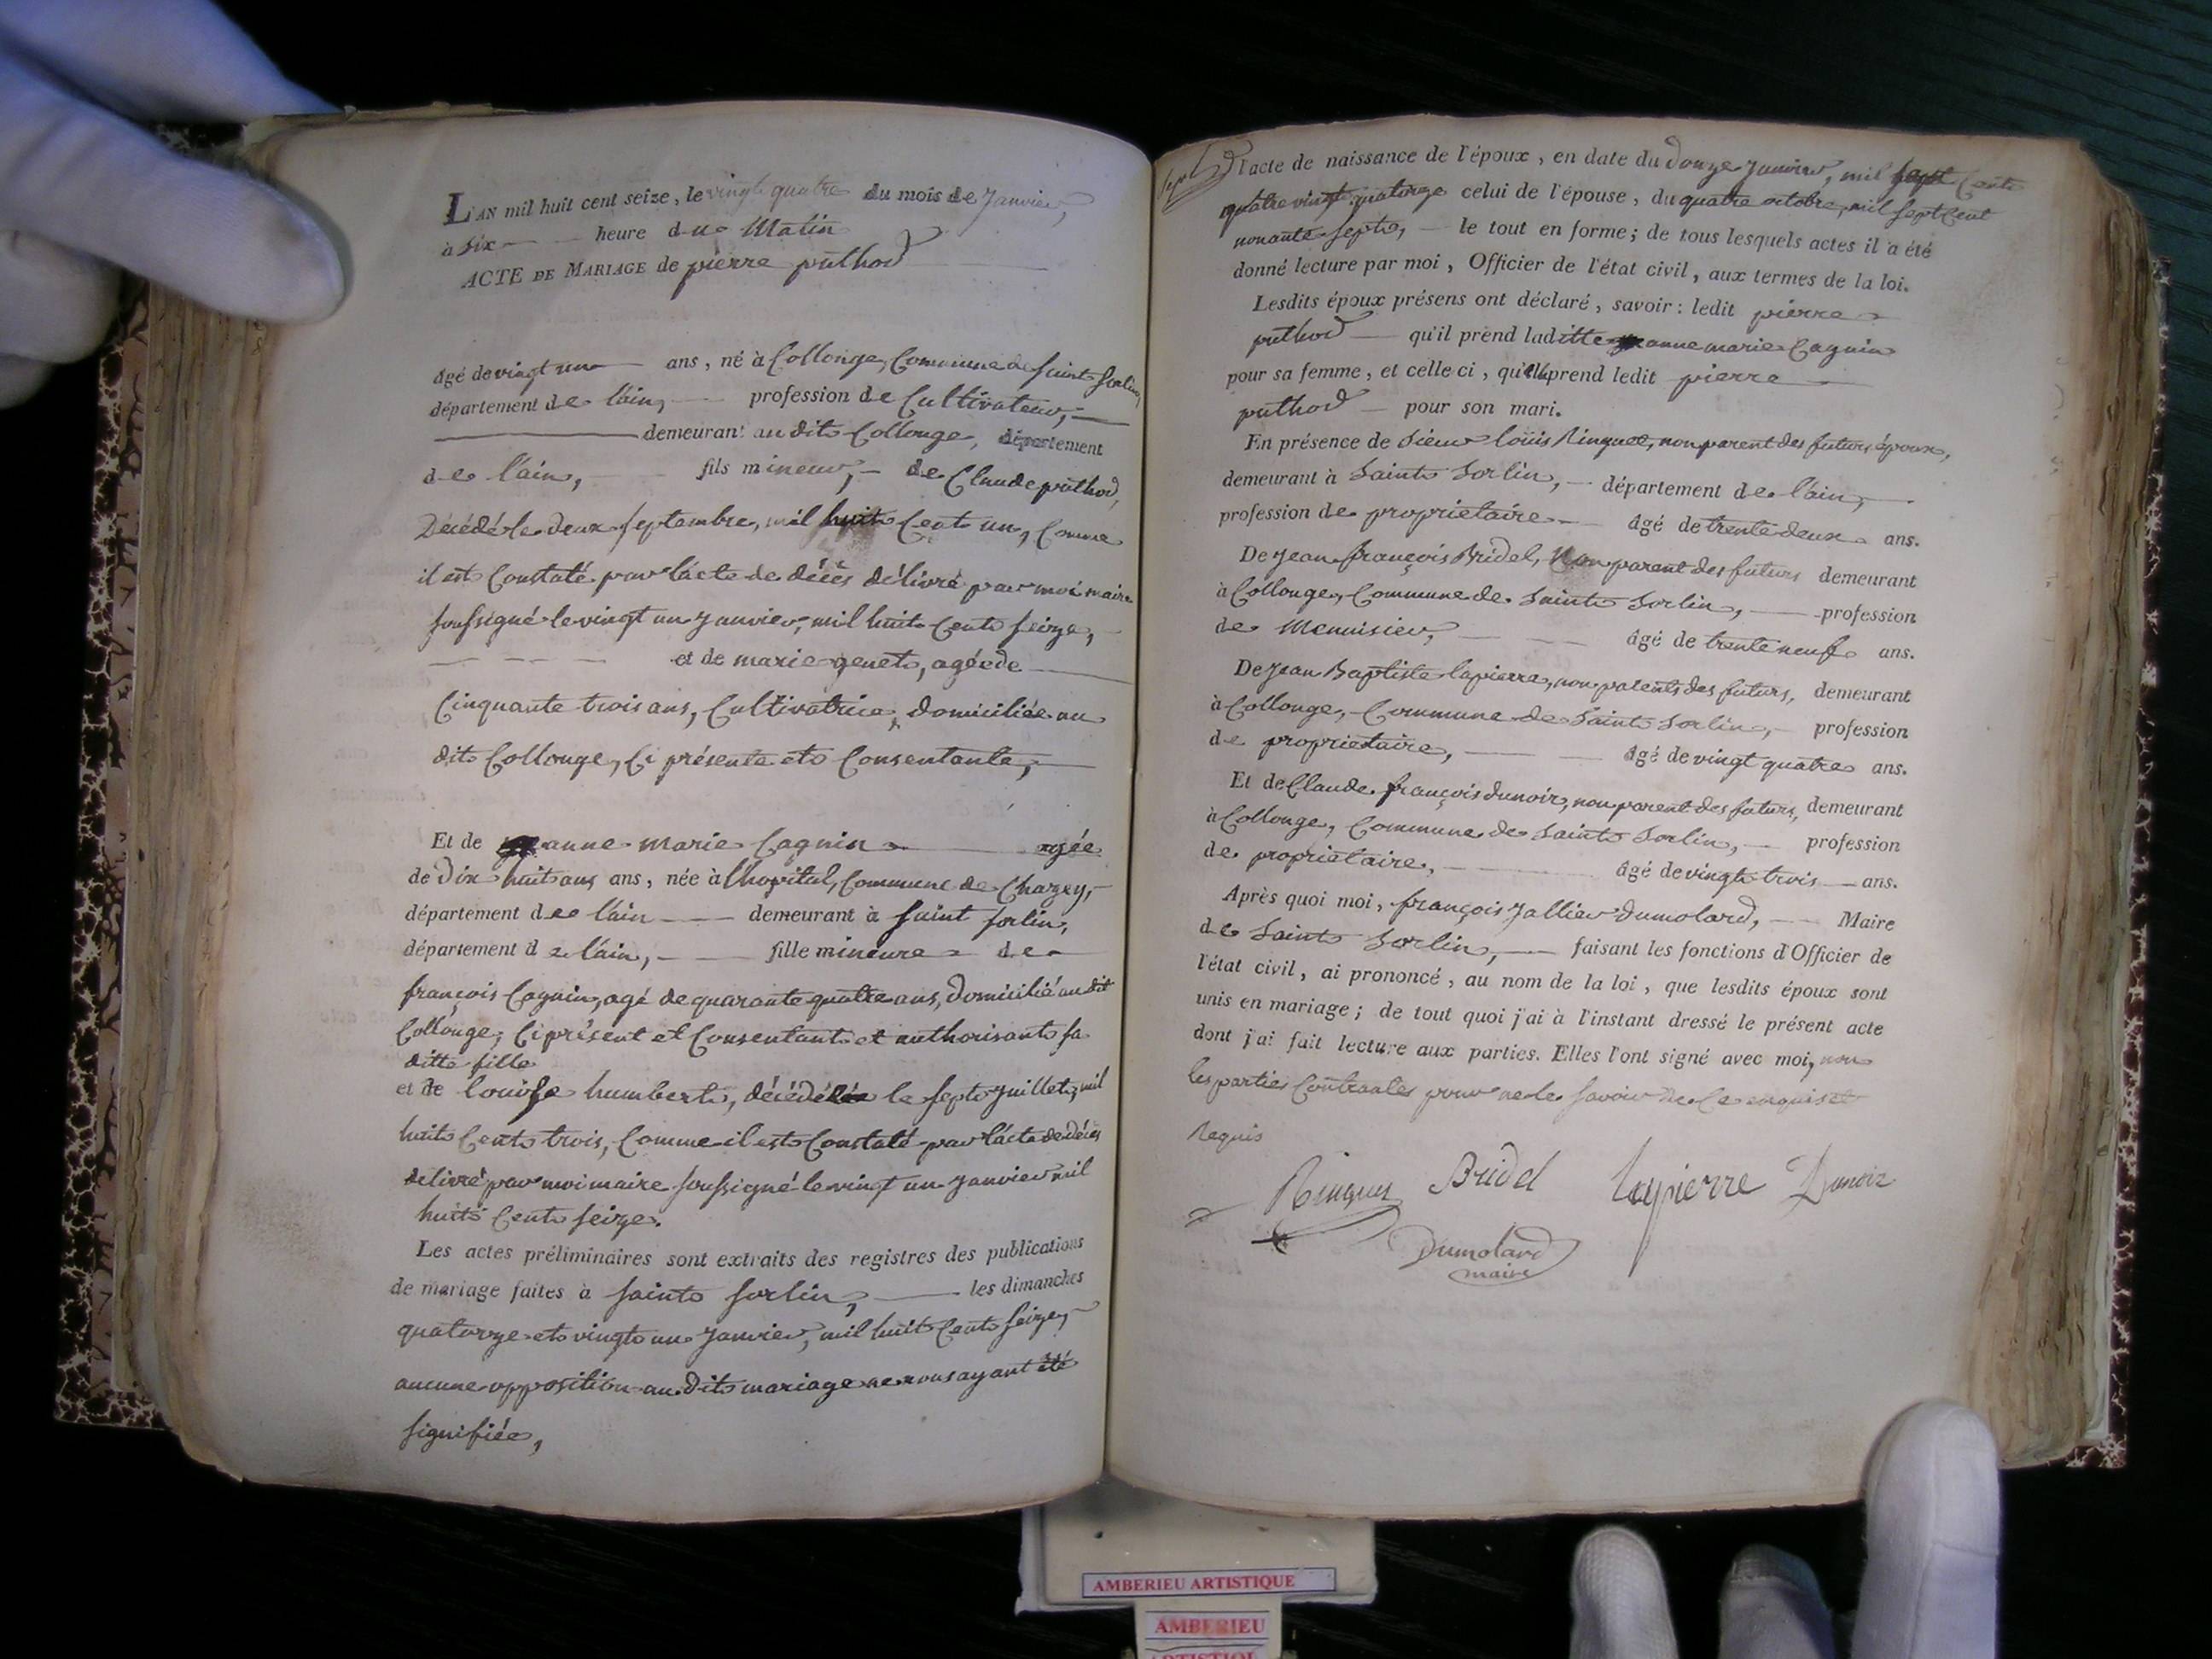 L'AN mil huit cent seize, le vingt quatre du mois de Janvier,
à Six heure du Matin
ACTE DE MARIAGE de pierre puthod
âgé de vingt un ans, né à Collonge, Commune de Saint Sorlin,
département de l'ain, profession de Cultivateur,
demeurant au dit Collonge, département
de l'ain, fils mineur, de Claude puthod,
Décédé le deux septembre, mil huit Cent un, Comme
il est Constaté par l'acte de décès délivré par moi maire
soussigné le vingt un Janvier, mil huit Cent seize,
et de marie genet, agée de
Cinquante trois ans, Cultivatrice, domiciliée au
dit Collonge, Ci présente et Consentante,
Et de anne marie Cagnin agée
de Dix huit ans ans, née à lhopital, Commune de Chazey,
département de l'ain demeurant à saint sorlin,
département de l'ain, fille mineure de
françois Cagnin, agé de quarante quatre ans, Domicilié au dit
Collonge, Ci présent et Consentant et authorisant sa
ditte fille
et de louise humbert, décédée le sept Juillet, mil
huit Cent trois, Comme il est Constaté par l'acte de décès
delivré par moi maire soussigné le vingt un Janvier mil
huit Cent seize.
Les actes préliminaires sont extraits des registres des publications
de mariage faites à saint sorlin, les dimanches
quatorze et vingt un Janvier, mil huit Cent seize,
aucune opposition au dit mariage ne nous ayant été
signifiée,
sept
l'acte de naissance de l'époux, en date du Douze Janvier, mil sept Cent
quatre vingt quatorze celui de l'épouse, du quatre octobre, mil sept Cent
nonante sept, le tout en forme; de tous lesquels actes il a été
donné lecture par moi, Officier de l'état civil, aux termes de la loi.
Lesdits époux présens ont déclaré, savoir: ledit pierre
puthod qu'il prend laditte anne marie Cagnin
pour sa femme, et celle ci, qu'elle prend ledit pierre
puthod pour son mari.
En présence de Sieur louis Ringuet, non parent des futurs époux,
demeurant à Saint Sorlin, département de l'ain,
profession de propriétaire âgé de trente deux ans.
De Jean françois Bridel, Non parent des futurs demeurant
à Collonge, Commune de Saint Sorlin, profession
de Menuisier, âgé de trente neuf ans.
De Jean Baptiste lapierre, non parents des futurs, demeurant
à Collonge, Commune de Saint Sorlin, profession
de propriétaire, âgé de vingt quatre ans.
Et de Claude françois dunoir, non parent des futurs, demeurant
à Collonge, Commune de Saint Sorlin, profession
de propriétaire, âgé de vingt trois ans.
Après quoi moi, françois Jallier Dumolard, Maire
de Saint Sorlin, faisant les fonctions d'Officier de
l'état civil, ai prononcé, au nom de la loi, que lesdits époux sont
unis en mariage; de tout quoi j'ai à l'instant dressé le présent acte
dont j'ai fait lecture aux parties. Elles l'ont signé avec moi, non
les parties Contractes pour ne le savoir de Ce enquis et
Requis
Ringuet Bridel lapierre Dunoir
Dumolard
maire
AMBERIEU ARTISTIQUE
AMBERIEU
ARTISTIQUE